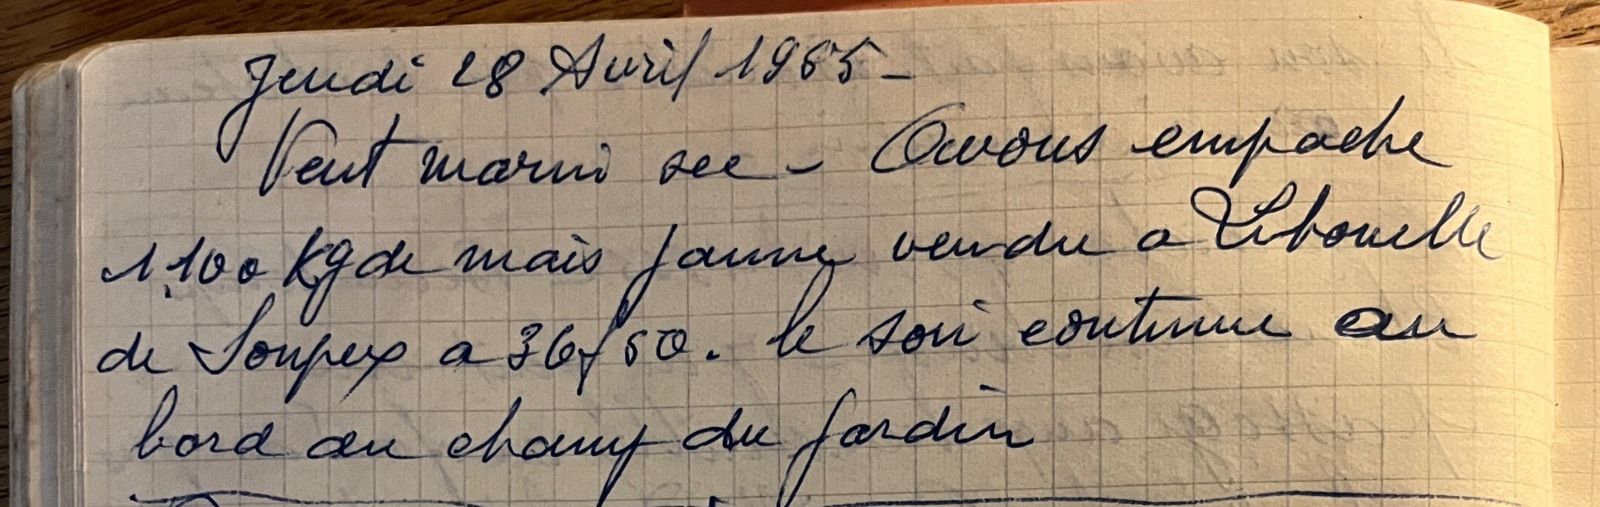 Jeudi 28 Avril 1965 -
Vent marin sec - Avons empoche
1.100 kg de mais jaune vendu a
de Soupex a 36f50. le soir continue au
bord au champ du jardin